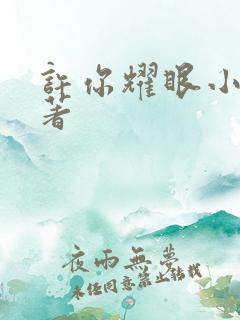 許你耀眼小
著
夜雨無夢
未经同意禁止转载